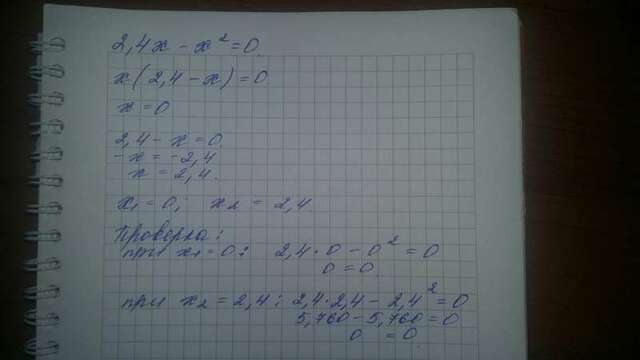 2,4x - x² = 0
x(2,4 - x) = 0
x = 0
2,4 - x = 0
-x = -2,4
x = 2,4.
x₁ = 0; x₂ = 2,4
Проверка:
при x₁ = 0: 2,4 · 0 - 0² = 0
0 = 0
при x₂ = 2,4: 2,4 · 2,4 - 2,4² = 0
5,760 - 5,760 = 0
0 = 0.